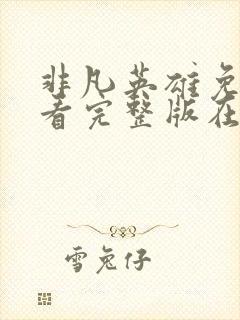 非凡英雄免
看完整版在
雪兔仔